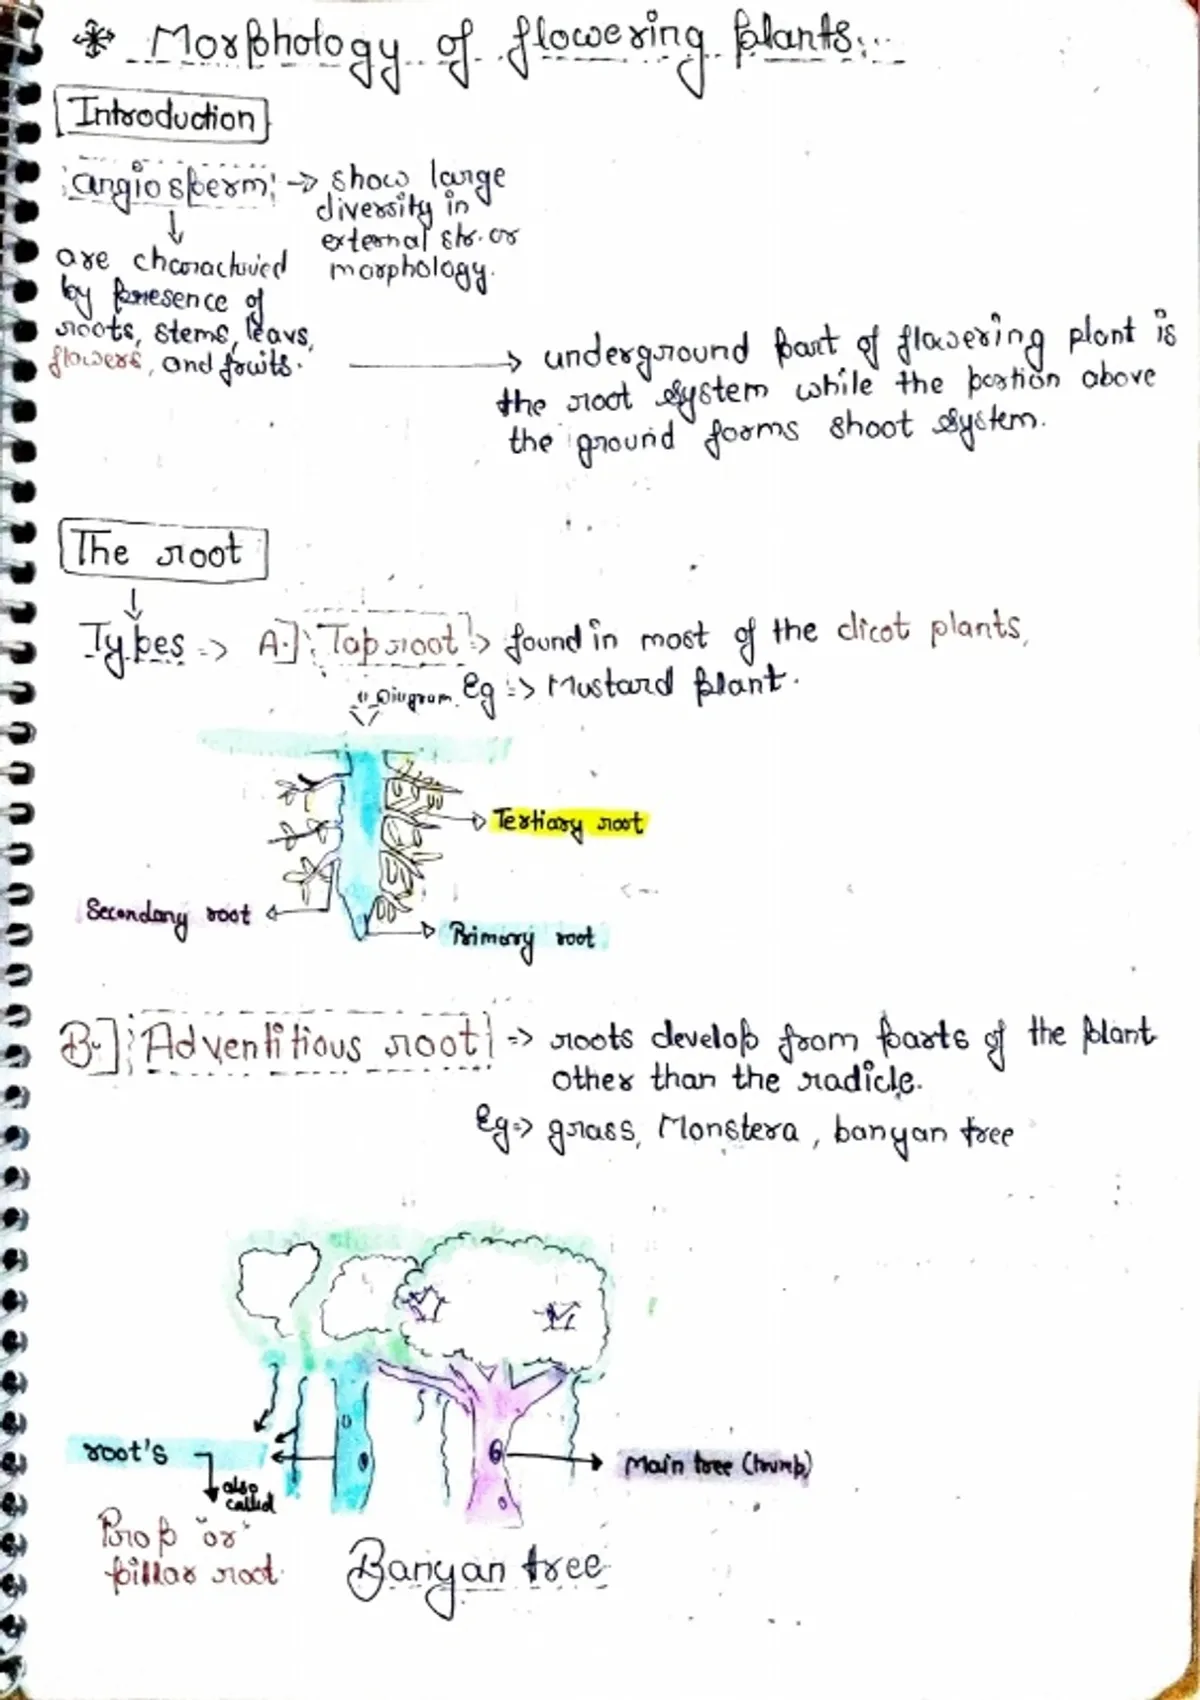 Morphology of flowering plants
Introduction
angiosperm → show large
diversity in
external str. or
morphology.
↓
are characturied
by presence of
roots, stems, leavs,
flowers, and fruits.
→ underground part of flowering plant is
the root system while the portion above
the ground forms shoot system.
The root
↓
Types => A.] Tap root => found in most of the dicot plants,
Eg => Mustard plant.
Diagram
Tertiary root
Secondary root
Primary root
B.] Adventitious root => roots develop from parts of the plant
other than the radicle.
Eg => grass, Monstera, banyan tree
root's
also
called
Main tree
Prop "or"
pillar root
Banyan tree